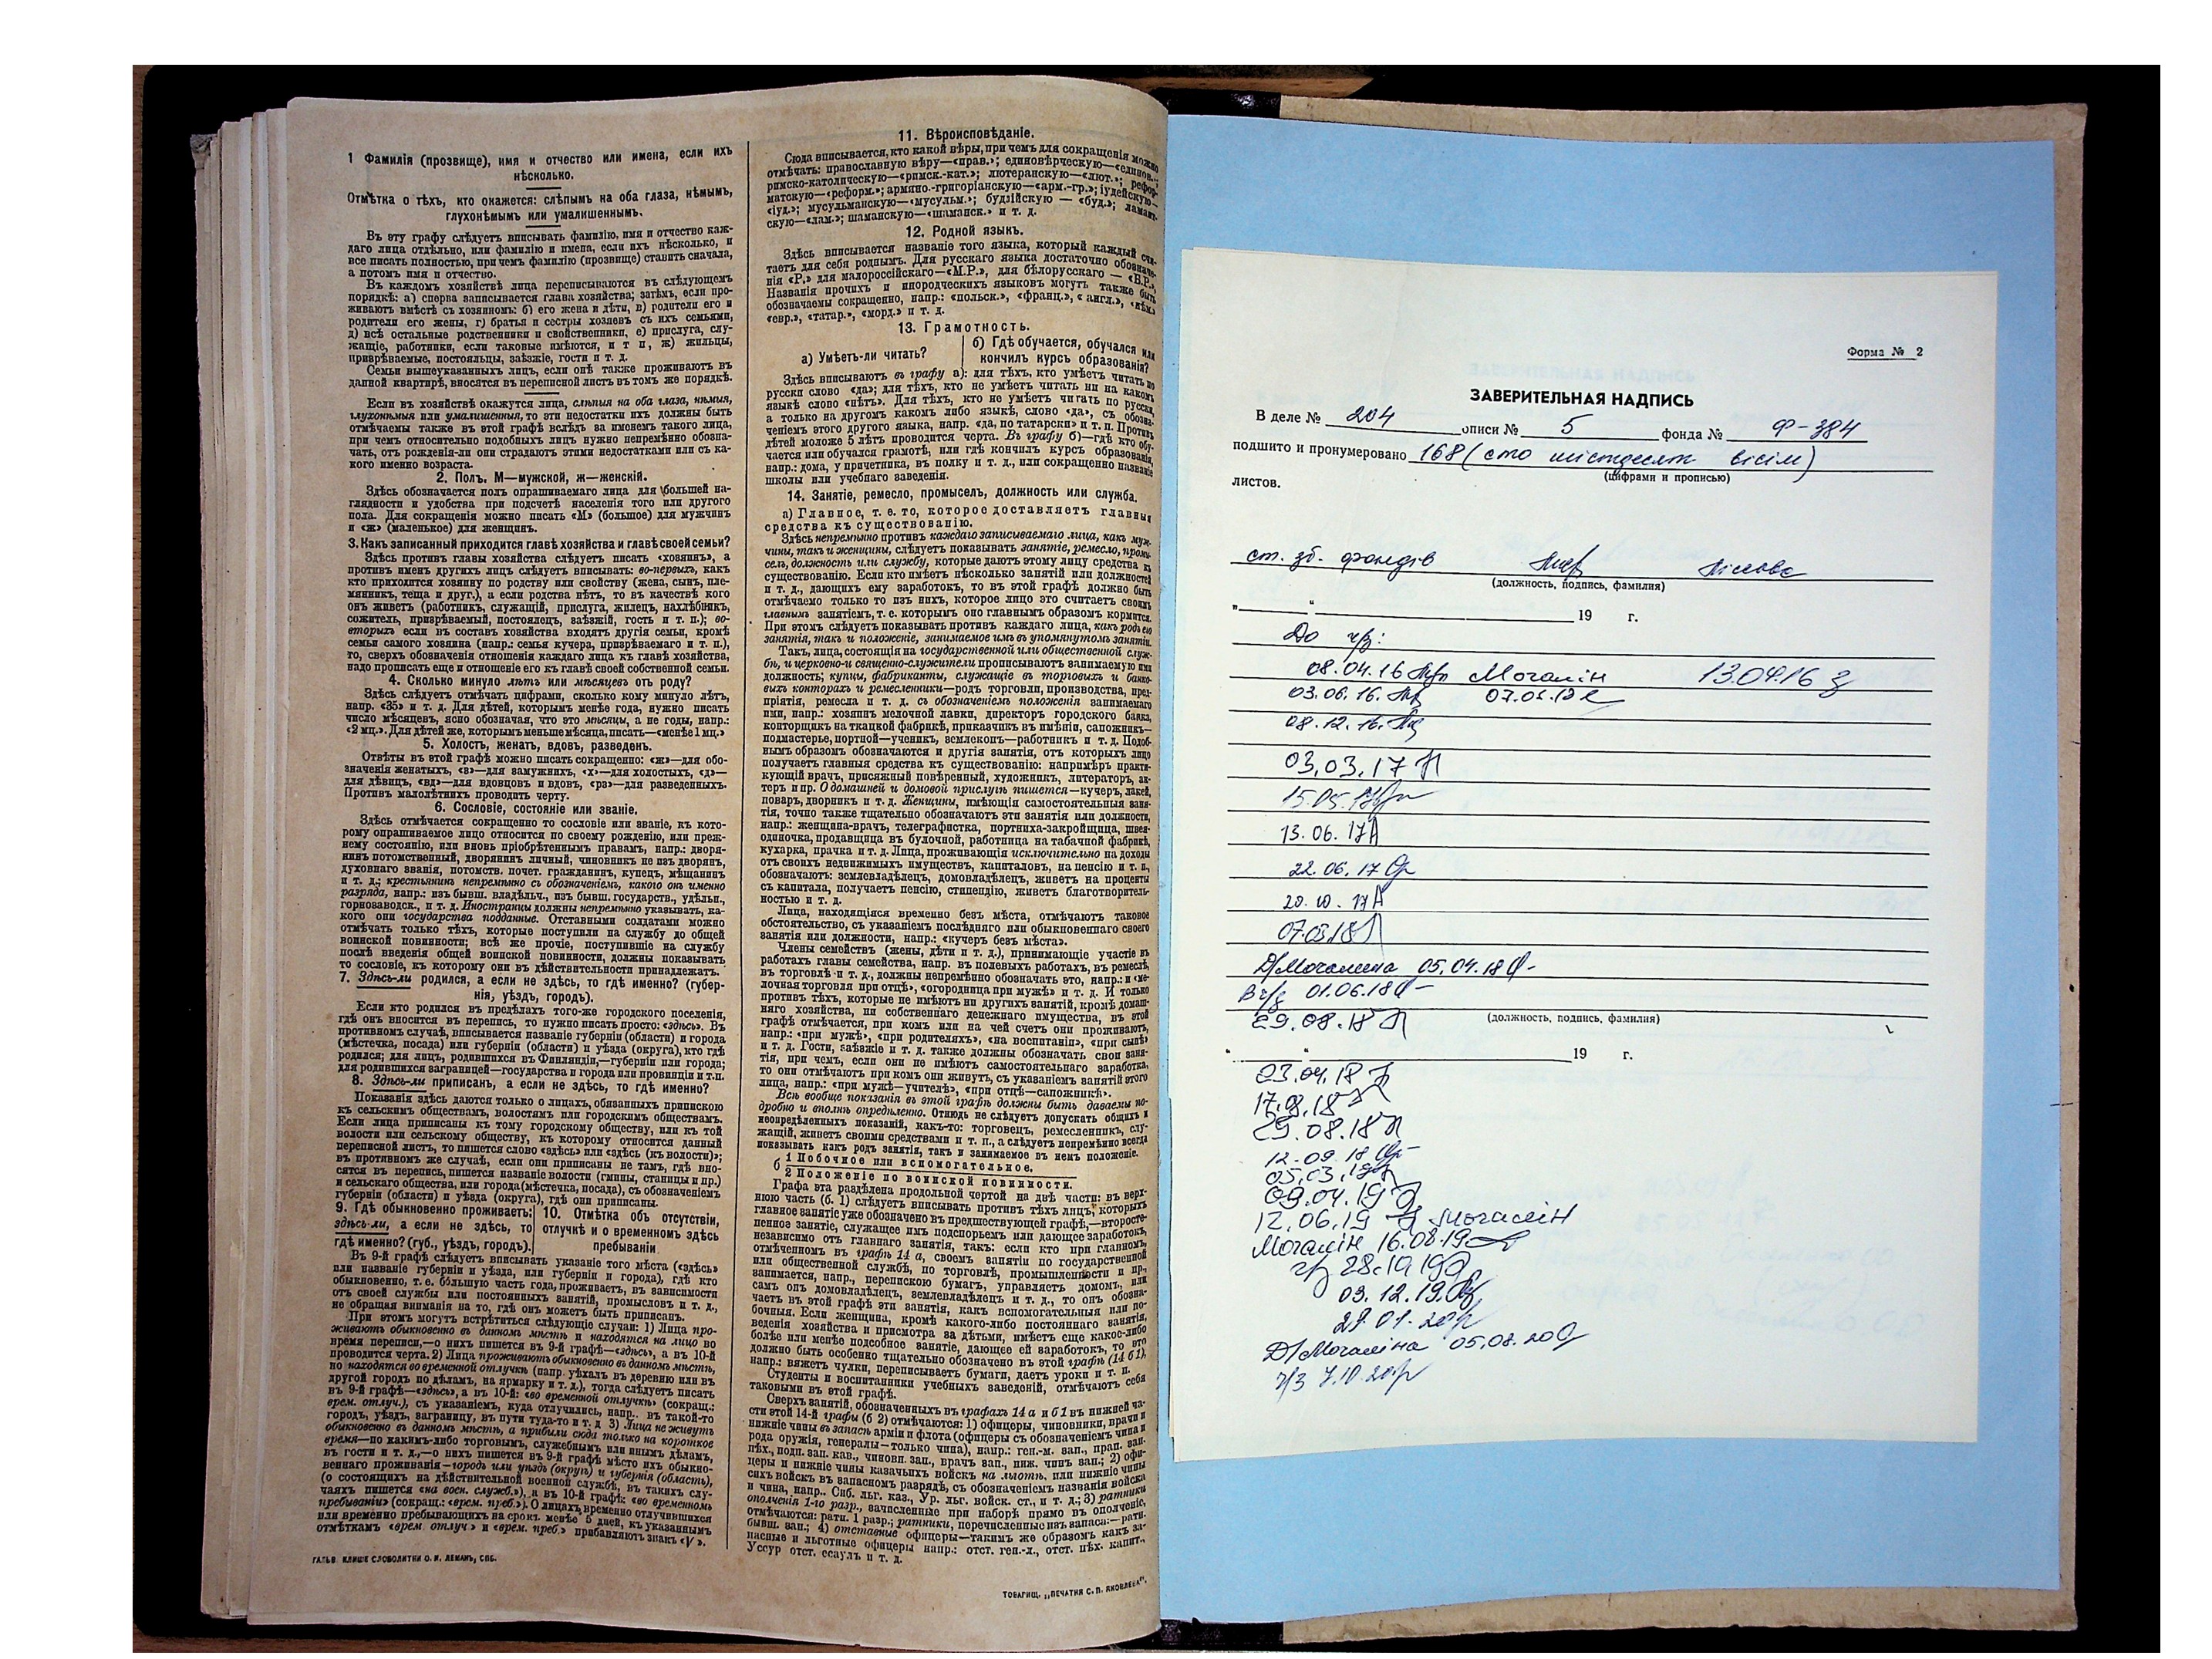 1 Фамилія (прозвище), имя и отчество или имена, если ихъ
нѣсколько.
Отмѣтка о тѣхъ, кто окажется: слѣпымъ на оба глаза, нѣмымъ,
глухонѣмымъ или умалишеннымъ.
Въ эту графу слѣдуетъ вписывать фамилію, имя и отчество каж-
даго лица отдѣльно, или фамилію и имена, если ихъ нѣсколько, и
все писать полностью, при чемъ фамилію (прозвище) ставить сначала,
а потомъ имя и отчество.
Въ каждомъ хозяйствѣ лица переписываются въ слѣдующемъ
порядкѣ: а) сперва записывается глава хозяйства; затѣмъ, если про-
живаютъ вмѣстѣ съ хозяиномъ: б) его жена и дѣти, в) родители его и
родители его жены, г) братья и сестры хозяевъ съ ихъ семьями,
д) всѣ остальные родственники и свойственники, е) прислуга, слу-
жащіе, работники, если таковые имѣются, и т п, ж) жильцы,
призрѣваемые, постояльцы, заѣзжіе, гости и т. д.
Семьи вышеуказанныхъ лицъ, если онѣ также проживаютъ въ
данной квартирѣ, вносятся въ переписной листъ въ томъ же порядкѣ.
Если въ хозяйствѣ окажутся лица, слѣпыя на оба глаза, нѣмыя,
глухонѣмыя или умалишенныя, то эти недостатки ихъ должны быть
отмѣчаемы также въ этой графѣ вслѣдъ за именемъ такого лица,
при чемъ относительно подобныхъ лицъ нужно непремѣнно обозна-
чать, отъ рожденія-ли они страдаютъ этими недостатками или съ ка-
кого именно возраста.
2. Полъ. М—мужской, ж—женскій.
Здѣсь обозначается полъ опрашиваемаго лица для большей на-
глядности и удобства при подсчетѣ населенія того или другого
пола. Для сокращенія можно писать «М» (большое) для мужчинъ
и «ж» (маленькое) для женщинъ.
3. Какъ записанный приходится главѣ хозяйства и главѣ своей семьи?
Здѣсь противъ главы хозяйства слѣдуетъ писать «хозяинъ», а
противъ именъ другихъ лицъ слѣдуетъ вписывать: во-первыхъ, какъ
кто приходится хозяину по родству или свойству (жена, сынъ, пле-
мянникъ, теща и друг.), а если родства нѣтъ, то въ качествѣ кого
онъ живетъ (работникъ, служащій, прислуга, жилецъ, нахлѣбникъ,
сожитель, призрѣваемый, постоялецъ, заѣзжій, гость и т. п.); во-
вторыхъ если въ составъ хозяйства входятъ другія семьи, кромѣ
семьи самого хозяина (напр.: семья кучера, призрѣваемаго и т. п.),
то, сверхъ обозначенія отношенія каждаго лица къ главѣ хозяйства,
надо прописать еще и отношеніе его къ главѣ своей собственной семьи.
4. Сколько минуло лѣтъ или мѣсяцевъ отъ роду?
Здѣсь слѣдуетъ отмѣчать цифрами, сколько кому минуло лѣтъ,
напр. «35» и т. д. Для дѣтей, которымъ менѣе года, нужно писать
число мѣсяцевъ, ясно обозначая, что это мѣсяцы, а не годы, напр.:
«2 мц.». Для дѣтей же, которымъ меньше мѣсяца, писать—«менѣе 1 мц.»
5. Холостъ, женатъ, вдовъ, разведенъ.
Отвѣты въ этой графѣ можно писать сокращенно: «ж»—для обо-
значенія женатыхъ, «з»—для замужнихъ, «х»—для холостыхъ, «д»—
для дѣвицъ, «вд»—для вдовцовъ и вдовъ, «рз»—для разведенныхъ.
Противъ малолѣтнихъ проводить черту.
6. Сословіе, состояніе или званіе.
Здѣсь отмѣчается сокращенно то сословіе или званіе, къ кото-
рому опрашиваемое лицо относится по своему рожденію, или преж-
нему состоянію, или вновь пріобрѣтеннымъ правамъ, напр.: дворя-
нинъ потомственный, дворянинъ личный, чиновникъ не изъ дворянъ,
духовнаго званія, потомств. почет. гражданинъ, купецъ, мѣщанинъ
и т. д.; крестьянинъ непремѣнно съ обозначеніемъ, какого онъ именно
разряда, напр.: изъ бывш. владѣльч., изъ бывш. государств., удѣльн.,
горнозаводск., и т. д. Иностранцы должны непремѣнно указывать, ка-
кого они государства подданные. Отставными солдатами можно
отмѣчать только тѣхъ, которые поступили на службу до общей
воинской повинности; всѣ же прочіе, поступившіе на службу
послѣ введенія общей воинской повинности, должны показывать
то сословіе, къ которому они въ дѣйствительности принадлежатъ.
7. Здѣсь-ли родился, а если не здѣсь, то гдѣ именно? (губер-
нія, уѣздъ, городъ).
Если кто родился въ предѣлахъ того-же городского поселенія,
гдѣ онъ вносится въ перепись, то нужно писать просто: «здѣсь». Въ
противномъ случаѣ, вписывается названіе губерніи (области) и города
(мѣстечка, посада) или губерніи (области) и уѣзда (округа), кто гдѣ
родился; для лицъ, родившихся въ Финляндіи,—губерніи или города;
для родившихся заграницей—государства и города или провинціи и т.п.
8. Здѣсь-ли приписанъ, а если не здѣсь, то гдѣ именно?
Показанія здѣсь даются только о лицахъ, обязанныхъ припискою
къ сельскимъ обществамъ, волостямъ или городскимъ обществамъ.
Если лица приписаны къ тому городскому обществу, или къ той
волости или сельскому обществу, къ которому относится данный
переписной листъ, то пишется слово «здѣсь» или «здѣсь (къ волости)»;
въ противномъ же случаѣ, если они приписаны не тамъ, гдѣ вно-
сятся въ перепись, пишется названіе волости (гмины, станицы и пр.)
и сельскаго общества, или города (мѣстечка, посада), съ обозначеніемъ
губерніи (области) и уѣзда (округа), гдѣ они приписаны.
9. Гдѣ обыкновенно проживаетъ:
здѣсь-ли, а если не здѣсь, то
гдѣ именно? (губ., уѣздъ, городъ).
10. Отмѣтка объ отсутствіи,
отлучкѣ и о временномъ здѣсь
пребываніи
Въ 9-й графѣ слѣдуетъ вписывать указаніе того мѣста («здѣсь»
или названіе губерніи и уѣзда, или губерніи и города), гдѣ кто
обыкновенно, т. е. бо́льшую часть года, проживаетъ, въ зависимости
отъ своей службы или постоянныхъ занятій, промысловъ и т. д.,
не обращая вниманія на то, гдѣ онъ можетъ быть приписанъ.
При этомъ могутъ встрѣтиться слѣдующіе случаи: 1) Лица про-
живаютъ обыкновенно въ данномъ мѣстѣ и находятся на лицо во
время переписи,—о нихъ пишется въ 9-й графѣ—«здѣсь», а въ 10-й
проводится черта. 2) Лица проживаютъ обыкновенно въ данномъ мѣстѣ,
но находятся во временной отлучкѣ (напр. уѣхалъ въ деревню или въ
другой городъ по дѣламъ, на ярмарку и т. д.), тогда слѣдуетъ писать
въ 9-й графѣ—«здѣсь», а въ 10-й: «во временной отлучкѣ» (сокращ.:
врем. отлуч.), съ указаніемъ, куда отлучились, напр.. въ такой-то
городъ, уѣздъ, заграницу, въ пути туда-то и т. д 3) Лица не живутъ
обыкновенно въ данномъ мѣстѣ, а прибыли сюда только на короткое
время—по какимъ-либо торговымъ, служебнымъ или инымъ дѣламъ,
въ гости и т. д.,—о нихъ пишется въ 9-й графѣ мѣсто ихъ обыкно-
веннаго проживанія—городъ или уѣздъ (округъ) и губернія (область),
(о состоящихъ на дѣйствительной военной службѣ, въ такихъ слу-
чаяхъ пишется «на воен. службѣ»), а въ 10-й графѣ: «во временномъ
пребываніи» (сокращ.: «врем. преб.»). О лицахъ, временно отлучившихся
или временно пребывающихъ на срокъ менѣе 5 дней, къ указаннымъ
отмѣткамъ «врем. отлуч.» и «врем. преб.» прибавляютъ знакъ «V».
ГАЛЬВ. КЛИШЕ СЛОВОЛИТНИ О. И. ЛЕМАНЪ, СПБ.
11. Вѣроисповѣданіе.
Сюда вписывается, кто какой вѣры, при чемъ для сокращенія можно
отмѣчать: православную вѣру—«прав.»; единовѣрческую—«единов.»;
римско-католическую—«римск.-кат.»; лютеранскую—«лют.»; рефор-
матскую—«реформ.»; армяно.-григоріанскую—«арм.-гр.»; іудейскую—
«іуд.»; мусульманскую—«мусульм.»; буддійскую — «буд.»; ламаит-
скую—«лам.»; шаманскую—«шаманск.» и т. д.
12. Родной языкъ.
Здѣсь вписывается названіе того языка, который каждый счи-
таетъ для себя роднымъ. Для русскаго языка достаточно обозначе-
нія «Р,» для малороссійскаго—«М.Р.», для бѣлорусскаго — «В.Р.»,
Названія прочихъ и инородческихъ языковъ могутъ также быть
обозначаемы сокращенно, напр.: «польск.», «франц.», « англ.», «нѣм.»
«евр.», «татар.», «морд.» и т. д.
13. Грамотность.
а) Умѣетъ-ли читать?
б) Гдѣ обучается, обучался или
кончилъ курсъ образованія?
Здѣсь вписываютъ въ графу а): для тѣхъ, кто умѣетъ читать по
русски слово «да»; для тѣхъ, кто не умѣетъ читать ни на какомъ
языкѣ слово «нѣтъ». Для тѣхъ, кто не умѣетъ читать по русски,
а только на другомъ какомъ либо языкѣ, слово «да», съ обозна-
ченіемъ этого другого языка, напр. «да, по татарски» и т. п. Противъ
дѣтей моложе 5 лѣтъ проводится черта. Въ графу б)—гдѣ кто обу-
чается или обучался грамотѣ, или гдѣ кончилъ курсъ образованія,
напр.: дома, у причетника, въ полку и т. д., или сокращенно названіе
школы или учебнаго заведенія.
14. Занятіе, ремесло, промыселъ, должность или служба.
а) Главное, т. е. то, которое доставляетъ главныя
средства къ существованію.
Здѣсь непремѣнно противъ каждаго записываемаго лица, какъ муж-
чины, такъ и женщины, слѣдуетъ показывать занятіе, ремесло, промы-
селъ, должность или службу, которые даютъ этому лицу средства къ
существованію. Если кто имѣетъ нѣсколько занятій или должностей
и т. д., дающихъ ему заработокъ, то въ этой графѣ должно быть
отмѣчаемо только то изъ нихъ, которое лицо это считаетъ своимъ
главнымъ занятіемъ, т. е. которымъ оно главнымъ образомъ кормится.
При этомъ слѣдуетъ показывать противъ каждаго лица, какъ родъ его
занятія, такъ и положеніе, занимаемое имъ въ упомянутомъ занятіи.
Такъ, лица, состоящія на государственной или общественной служ-
бѣ, и церковно-и священно-служители прописываютъ занимаемую ими
должность; купцы, фабриканты, служащіе въ торговыхъ и банко-
выхъ конторахъ и ремесленники—родъ торговли, производства, пред-
пріятія, ремесла и т. д. съ обозначеніемъ положенія занимаемаго
ими, напр.: хозяинъ мелочной лавки, директоръ городского банка,
конторщикъ на ткацкой фабрикѣ, приказчикъ въ имѣніи, сапожникъ—
подмастерье, портной—ученикъ, землекопъ—работникъ и т. д. Подоб-
нымъ образомъ обозначаются и другія занятія, отъ которыхъ лицо
получаетъ главныя средства къ существованію: напримѣръ практи-
кующій врачъ, присяжный повѣренный, художникъ, литераторъ, ак-
теръ и пр. О домашней и домовой прислугѣ пишется—кучеръ, лакей,
поваръ, дворникъ и т. д. Женщины, имѣющія самостоятельныя заня-
тія, точно также тщательно обозначаютъ эти занятія или должности,
напр.: женщина-врачъ, телеграфистка, портниха-закройщица, швея-
одиночка, продавщица въ булочной, работница на табачной фабрикѣ,
кухарка, прачка и т. д. Лица, проживающія исключительно на доходы
отъ своихъ недвижимыхъ имуществъ, капиталовъ, на пенсію и т. п.,
обозначаютъ: землевладѣлецъ, домовладѣлецъ, живетъ на проценты
съ капитала, получаетъ пенсію, стипендію, живетъ благотворитель-
ностью и т. д.
Лица, находящіяся временно безъ мѣста, отмѣчаютъ таковое
обстоятельство, съ указаніемъ послѣдняго или обыкновеннаго своего
занятія или должности, напр.: «кучеръ безъ мѣста».
Члены семействъ (жены, дѣти и т. д.), принимающіе участіе въ
работахъ главы семейства, напр. въ полевыхъ работахъ, въ ремеслѣ,
въ торговлѣ и т. д., должны непремѣнно обозначать это, напр.: и «ме-
лочная торговля при отцѣ», «огородница при мужѣ» и т. д. И только
противъ тѣхъ, которые не имѣютъ ни другихъ занятій, кромѣ домаш-
няго хозяйства, ни собственнаго денежнаго имущества, въ этой
графѣ отмѣчается, при комъ или на чей счетъ они проживаютъ,
напр.: «при мужѣ», «при родителяхъ», «на воспитаніи», «при сынѣ»
и т. д. Гости, заѣзжіе и т. д. также должны обозначать свои заня-
тія, при чемъ, если они не имѣютъ самостоятельнаго заработка,
то они отмѣчаютъ при комъ они живутъ, съ указаніемъ занятій этого
лица, напр.: «при мужѣ—учителѣ», «при отцѣ—сапожникѣ».
Всѣ вообще показанія въ этой графѣ должны быть даваемы по-
дробно и вполнѣ опредѣленно. Отнюдь не слѣдуетъ допускать общихъ и
неопредѣленныхъ показаній, какъ-то: торговецъ, ремесленникъ, слу-
жащій, живетъ своими средствами и т. п., а слѣдуетъ непремѣнно всегда
показывать какъ родъ занятія, такъ и занимаемое въ немъ положеніе.
1 Побочное или вспомогательное.
б
2 Положеніе по воинской повинности.
Графа эта раздѣлена продольной чертой на двѣ части: въ верх-
нюю часть (б. 1) слѣдуетъ вписывать противъ тѣхъ лицъ, которыхъ
главное занятіе уже обозначено въ предшествующей графѣ,—второсте-
пенное занятіе, служащее имъ подспорьемъ или дающее заработокъ,
независимо отъ главнаго занятія, такъ: если кто при главномъ,
отмѣченномъ въ графѣ 14 а, своемъ занятіи по государственной
или общественной службѣ, по торговлѣ, промышленности и пр.,
занимается, напр., перепискою бумагъ, управляетъ домомъ, или
самъ онъ домовладѣлецъ, землевладѣлецъ и т. д., то онъ обозна-
чаетъ въ этой графѣ эти занятія, какъ вспомогательныя или по-
бочныя. Если женщина, кромѣ какого-либо постояннаго занятія,
веденія хозяйства и присмотра за дѣтьми, имѣетъ еще какое-либо
болѣе или менѣе подсобное занятіе, дающее ей заработокъ, то это
должно быть особенно тщательно обозначено въ этой графѣ (14 б1),
напр.: вяжетъ чулки, переписываетъ бумаги, даетъ уроки и т. п.
Студенты и воспитанники учебныхъ заведеній, отмѣчаютъ себя
таковыми въ этой графѣ.
Сверхъ занятій, обозначенныхъ въ графахъ 14 а и б1 въ нижней ча-
сти этой 14-й графы (б 2) отмѣчаются: 1) офицеры, чиновники, врачи и
нижніе чины въ запасѣ арміи и флота (офицеры съ обозначеніемъ чина и
рода оружія, генералы—только чина), напр.: ген.-м. зап., прап. зап.
пѣх., подп. зап. кав., чиновн. зап., врачъ зап., ниж. чинъ зап.; 2) офи-
церы и нижніе чины казачьихъ войскъ на льготѣ, или нижніе чины
сихъ войскъ въ запасномъ разрядѣ, съ обозначеніемъ названія войска
и чина, напр.. Сиб. льг. каз., Ур. льг. войск. ст., и т. д.; 3) ратники
ополченія 1-го разр., зачисленные при наборѣ прямо въ ополченіе,
отмѣчаются: ратн. 1 разр.; ратники, перечисленные изъ запаса:—ратн.
бывш. зап.; 4) отставные офицеры—такимъ же образомъ какъ за-
пасные и льготные офицеры напр.: отст. ген.-л., отст. пѣх. капит.,
Уссур отст. есаулъ и т. д.
ТОВАРИЩ. „ПЕЧАТНЯ С. П. ЯКОВЛЕВА".
Форма № 2
ЗАВЕРИТЕЛЬНАЯ НАДПИСЬ
В деле № 204 описи № 5 фонда № Ф-384
подшито и пронумеровано 168 (сто шістдесят вісім)
(цифрами и прописью)
листов.
ст. зб. фондів
(должность, подпись, фамилия)
„ “ 19 г.
До ч/з:
08.04.16 Могалін 13.04.16
03.06.16.
08.12.16.
03.03.17
15.05.17
13.06.17
22.06.17
20.10.17
07.03.18
Д/Могалина 05.04.18
В ч/з 01.06.18
29.08.18
(должность, подпись, фамилия)
„ “ 19 г.
23.04.18
17.08.18
29.08.18
12.09.18
05.03.19
09.04.19
12.06.19 Могалін
Могалін 16.08.19
ч/з 28.10.19
03.12.19
29.01.20
Д/Могаліна 05.08.20
ч/з 7.10.20